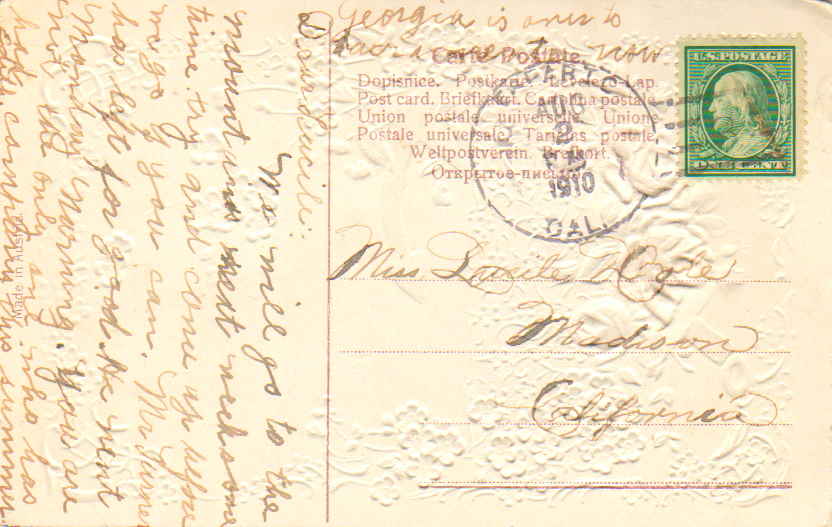 Georgia is over to
Sacramento now
Carte Postale.
Dopisnice. Postkarte. Levelező-Lap.
Post card. Briefkaart. Cartolina postale.
Union postale universelle. Unione
Postale universale. Tarjetas postale.
Weltpostverein. Brefkort.
Открытое письмо
U.S. POSTAGE
2
1910
CAL.
Dear Lucile:
We will go to the
mount and next weck some
time. try and come up before
we go if you can. Mr Turner
has left for good. He went
Monday Morning. You are
not the only one who has
this summer
Made in Austria.
Miss Lucile
Madison
California